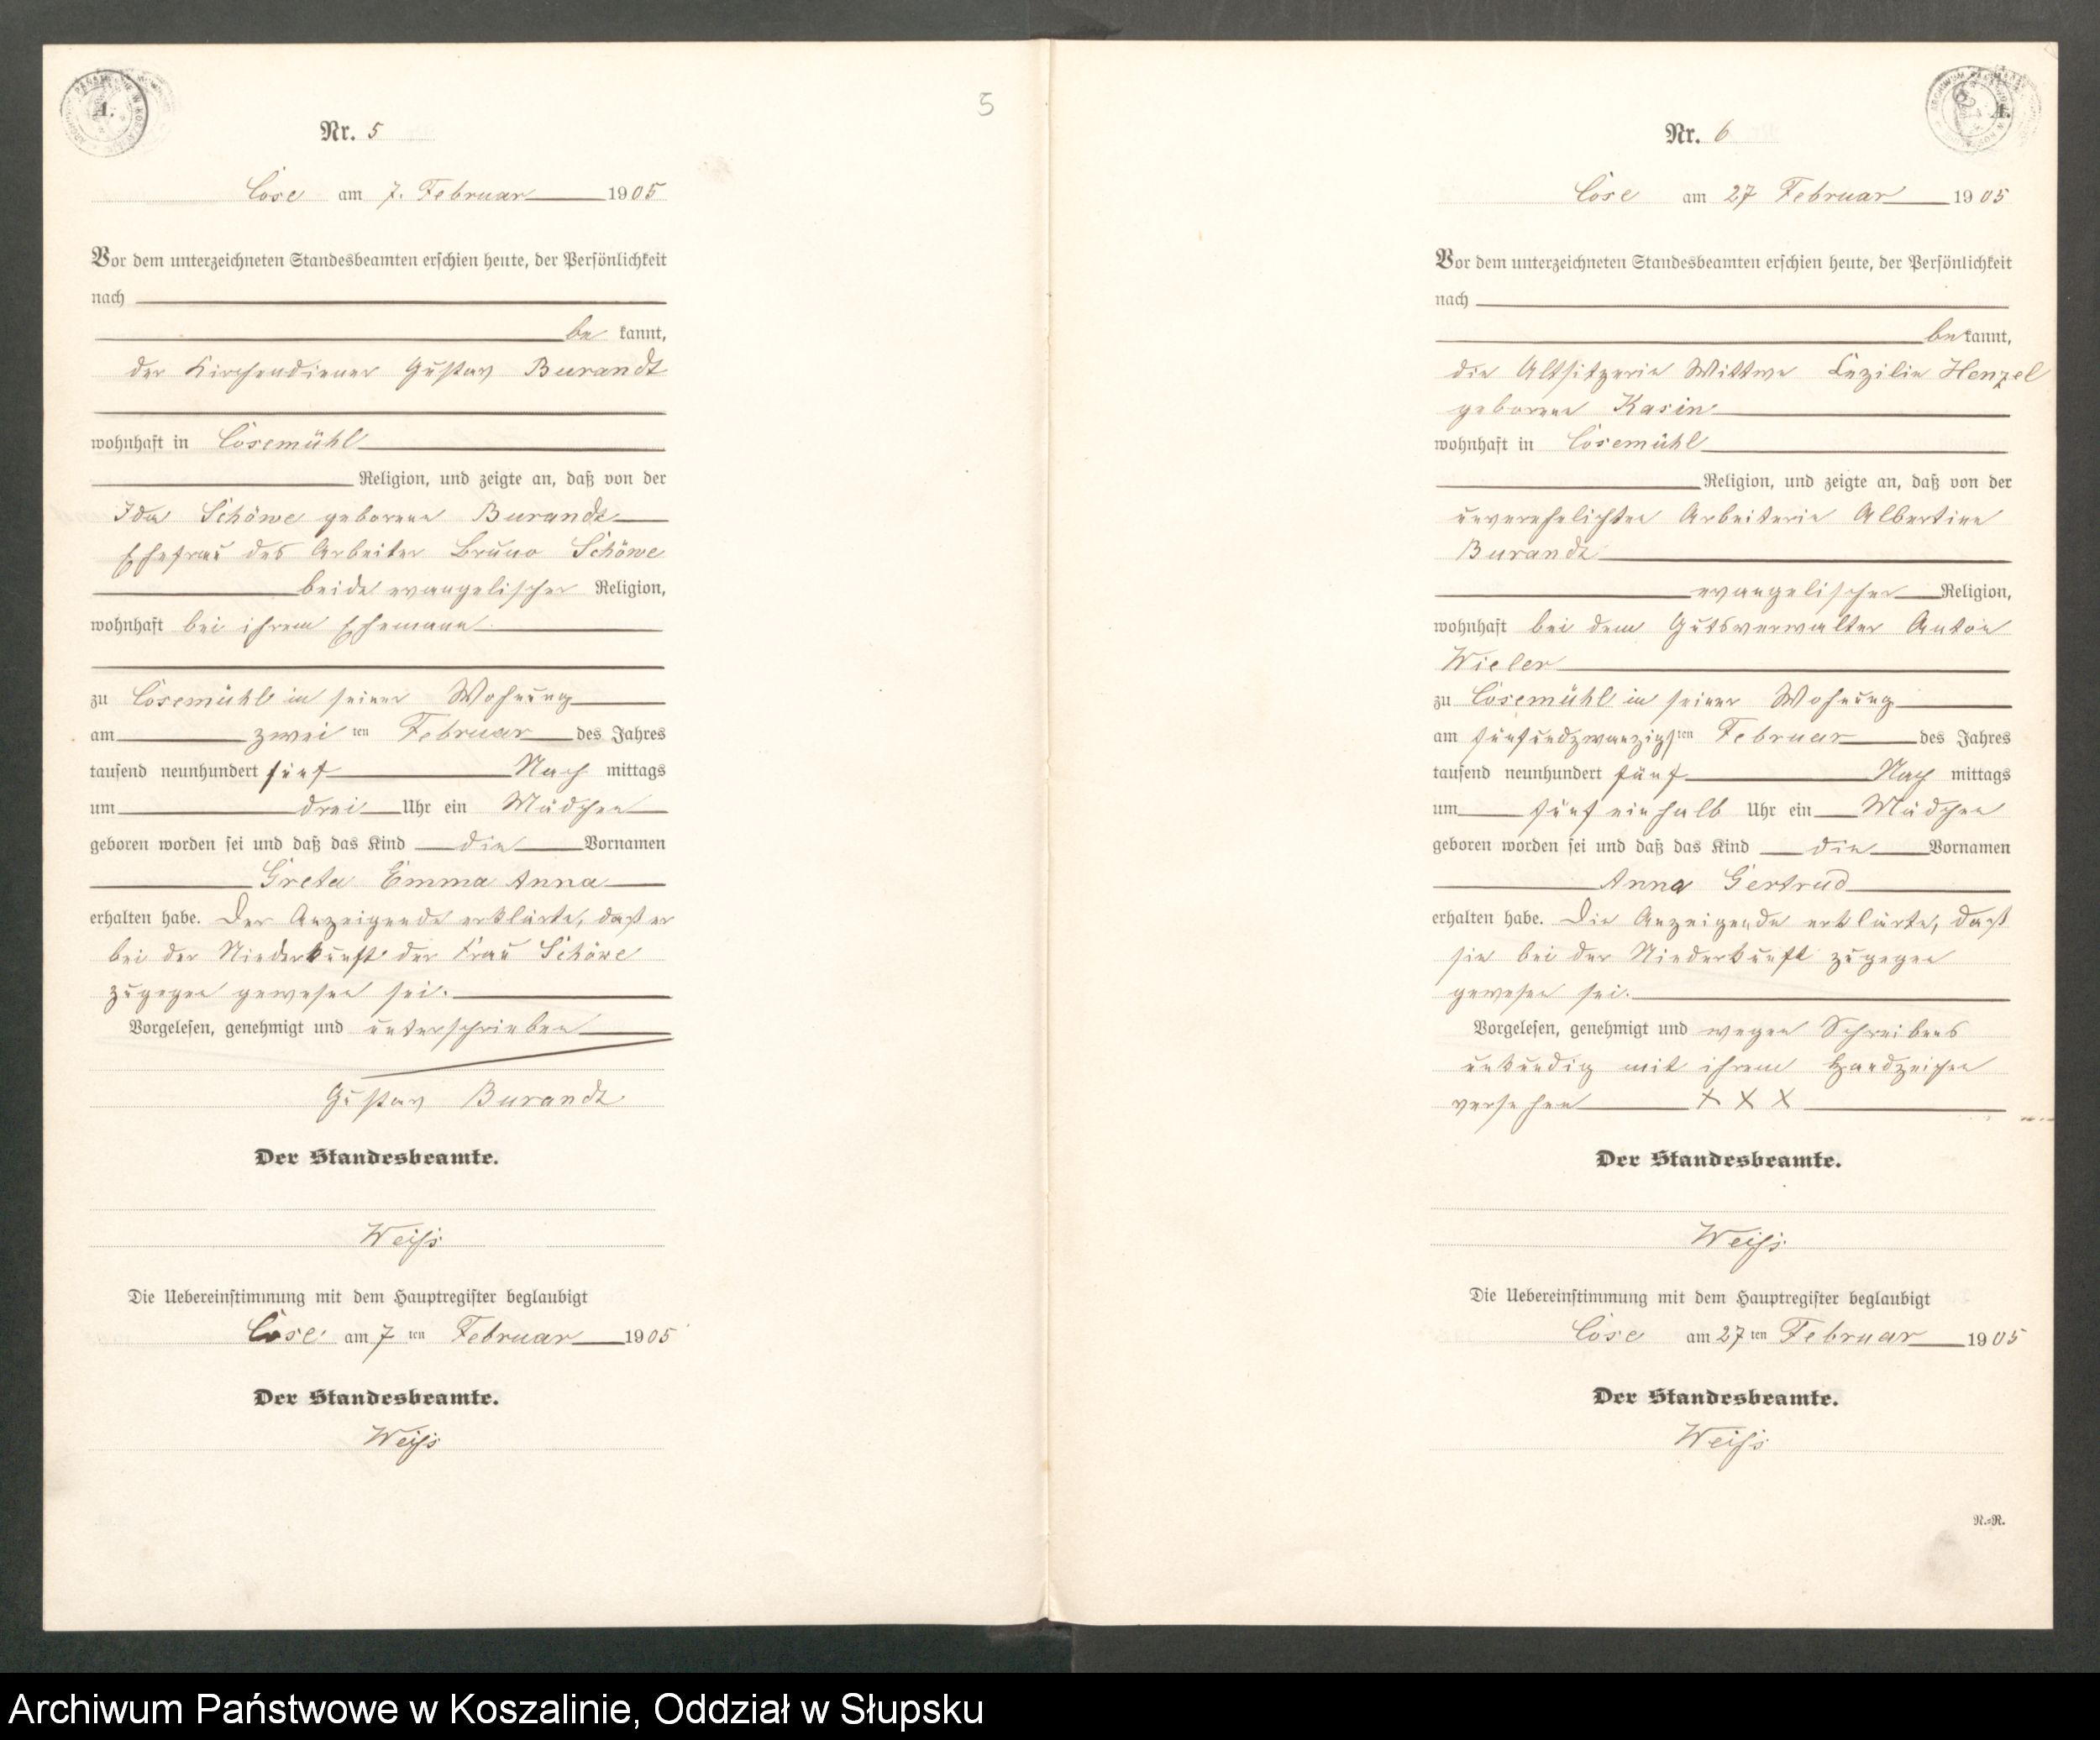 5
Nr. 5
Cose am 7. Februar 1905
Vor dem unterzeichneten Standesbeamten erschien heute, der Persönlichkeit
nach
be kannt,
der Kirchendiener Gustav Burandt
wohnhaft in Cosemühl
Religion, und zeigte an, daß von der
Ida Schöwe geborene Burandt
Ehefrau des Arbeiter Bruno Schöwe
beide evangelischer Religion,
wohnhaft bei ihrem Ehemann
zu Cosemühl in seiner Wohnung
am zwei ten Februar des Jahres
tausend neunhundert fünf Nach mittags
um drei Uhr ein Mädchen
geboren worden sei und daß das Kind die Vornamen
Greta Emma Anna
erhalten habe. Der Anzeigende erklärte, daß er
bei der Niederkunft der Frau Schöwe
zugegen gewesen sei.
Vorgelesen, genehmigt und unterschrieben
Gustav Burandt
Der Standesbeamte.
Weiss
Die Uebereinstimmung mit dem Hauptregister beglaubigt
Cose am 7 ten Februar 1905
Der Standesbeamte.
Weiss
Nr. 6
Cose am 27 Februar 1905
Vor dem unterzeichneten Standesbeamten erschien heute, der Persönlichkeit
nach
be kannt,
die Altsitzerin Wittwe Cezilie Henzel
geborene Kasin
wohnhaft in Cosemühl
Religion, und zeigte an, daß von der
unverehelichten Arbeiterin Albertine
Burandt
evangelischer Religion,
wohnhaft bei dem Gutsverwalter Anton
Wieler
zu Cosemühl in seiner Wohnung
am fünfundzwanzigsten Februar des Jahres
tausend neunhundert fünf Nach mittags
um fünf einhalb Uhr ein Mädchen
geboren worden sei und daß das Kind die Vornamen
Anna Gertrud
erhalten habe. Die Anzeigende erklärte, daß
sie bei der Niederkunft zugegen
gewesen sei.
Vorgelesen, genehmigt und wegen Schreibens
unkundig mit ihrem Handzeichen
versehen X X X
Der Standesbeamte.
Weiss
Die Uebereinstimmung mit dem Hauptregister beglaubigt
Cose am 27 ten Februar 1905
Der Standesbeamte.
Weiss
N.=R.
Archiwum Państwowe w Koszalinie, Oddział w Słupsku